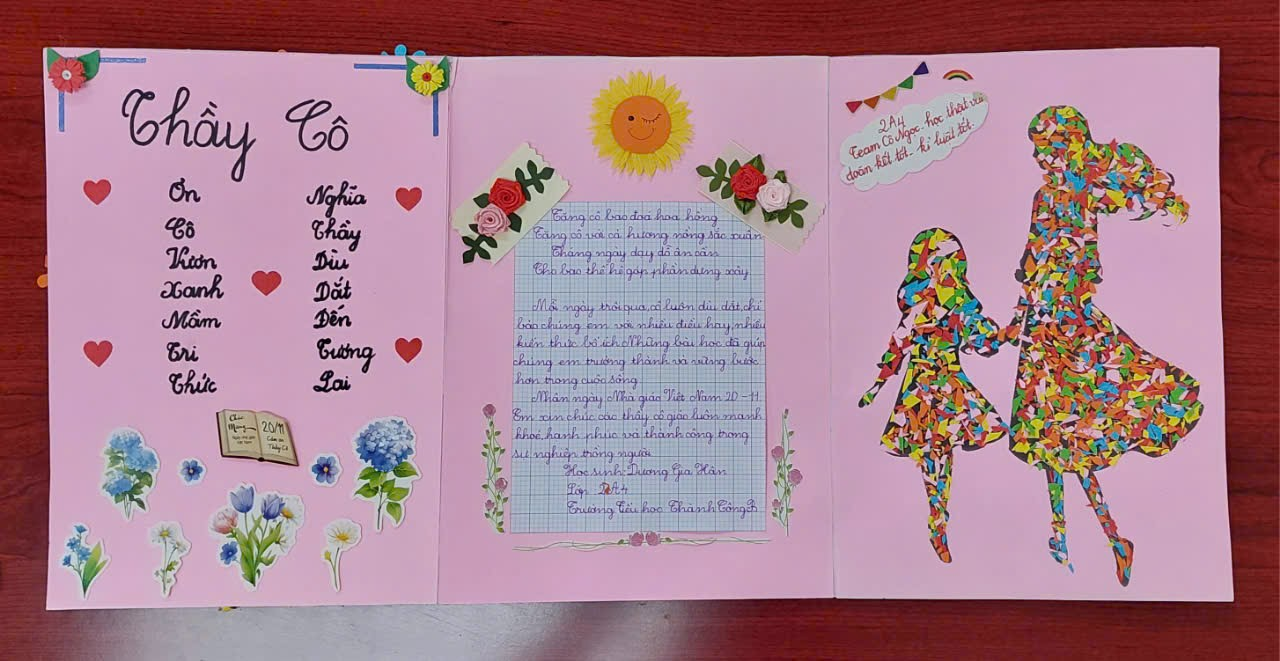 Thầy Cô
Ơn Nghĩa
Cô Thầy
Vươn Dìu
Xanh Dắt
Mầm Đến
Tri Tương
Thức Lai
Chúc Mừng
Ngày nhà giáo
Việt Nam
20/11
Cảm ơn
Thầy Cô
Tặng cô bao đoá hoa hồng
Tặng cô với cả hương nồng sắc xuân
Tháng ngày dạy dỗ ân cần
Cho bao thế hệ góp phần dựng xây
Mỗi ngày trôi qua, cô luôn dìu dắt, chỉ
bảo chúng em với nhiều điều hay, nhiều
kiến thức bổ ích. Những bài học đã giúp
chúng em trưởng thành và vững bước
hơn trong cuộc sống
Nhân ngày Nhà giáo Việt Nam 20-11.
Em xin chúc các thầy cô giáo luôn mạnh
khoẻ, hạnh phúc và thành công trong
sự nghiệp trồng người
Học sinh: Dương Gia Hân
Lớp 2A4
Trường Tiểu học Thành Công B
2A4
Team Cô Ngọc - học thật vui
đoàn kết tốt - kỉ luật tốt.